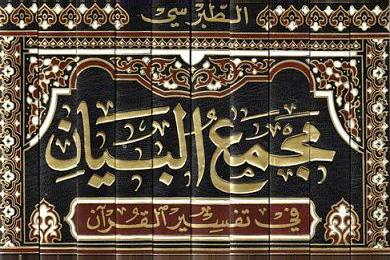 الطبرسي
مَجمَعُ البَيَانِ
في تفسير القرآن